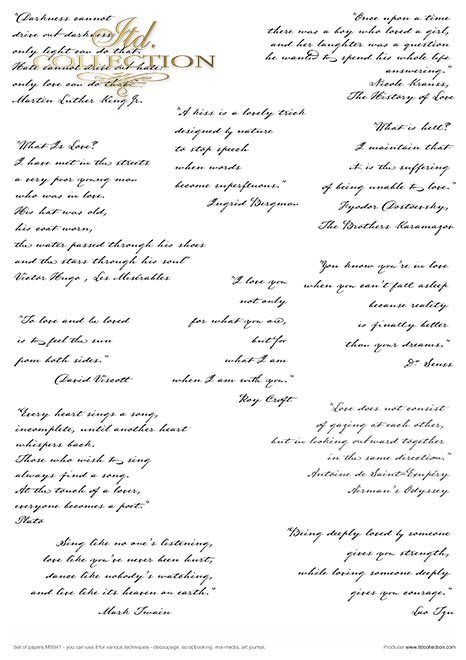 Itd.
COLLECTION
"Darkness cannot
drive out darkness:
only light can do that.
Hate cannot drive out hate:
only love can do that."
Martin Luther King Jr.
"Once upon a time
there was a boy who loved a girl,
and her laughter was a question
he wanted to spend his whole life
answering."
Nicole Krauss,
The History of Love
"A kiss is a lovely trick
designed by nature
to stop speech
when words
become superfluous."
Ingrid Bergman
"What is hell?
I maintain that
it is the suffering
of being unable to love."
Fyodor Dostoevsky,
The Brothers Karamazov
"What Is Love?
I have met in the streets
a very poor young man
who was in love.
His hat was old,
his coat worn,
the water passed through his shoes
and the stars through his soul"
Victor Hugo , Les Misérables
"You know you're in love
when you can't fall asleep
because reality
is finally better
than your dreams."
Dr. Seuss
"I love you
not only
for what you are,
but for
what I am
when I am with you."
Roy Croft
"To love and be loved
is to feel the sun
from both sides."
David Viscott
"Every heart sings a song,
incomplete, until another heart
whispers back.
Those who wish to sing
always find a song.
At the touch of a lover,
everyone becomes a poet."
Plato
"Love does not consist
of gazing at each other,
but in looking outward together
in the same direction."
Antoine de Saint-Exupéry
Airman's Odyssey
Sing like no one's listening,
love like you've never been hurt,
dance like nobody's watching,
and live like its heaven on earth."
Mark Twain
"Being deeply loved by someone
gives you strength,
while loving someone deeply
gives you courage."
Lao Tzu
Set of papers MS041 - you can use it for various techniques - decoupage, scrapbooking, mix-media, art journal.
Producer www.itdcollection.com